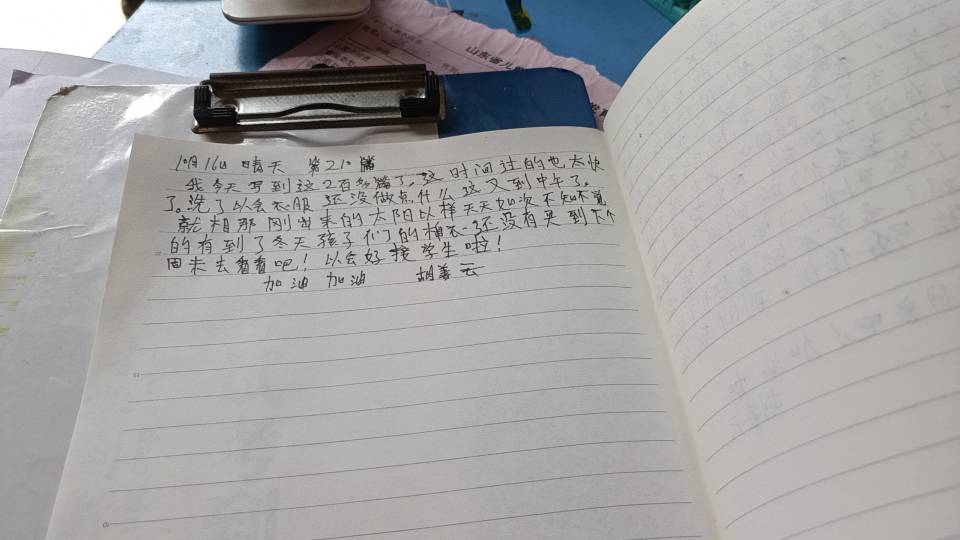 山东省儿
10月16日 晴天 第210篇
我今天写到这2百多篇了,这时间过的也太快
了。洗了以会衣服还没做点什么这又到中午了。
就相那刚出来的太阳以样天天如次不知不觉
的有到了冬天孩子们的棉衣还没有买到下个
周末去看看吧!以会好接学生啦!
加油 加油 胡善云